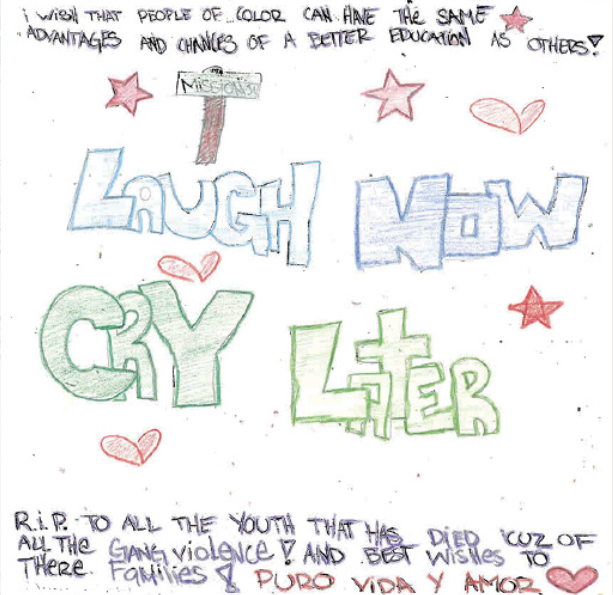 i WiSH THAT PEOPLE OF COLOR CAN HAVE THE SAME
ADVANTAGES AND CHANCES OF A BETTER EDUCATION AS OTHERS!
MiSSiON
LAUGH NOW
CRY LATER
R.i.P. TO ALL THE YOUTH THAT HAS DiED 'CUZ OF
ALL THE GANG ViOLENCE! AND BEST WiSHES TO
THERE FAMiLiES! PURO ViDA Y AMOR